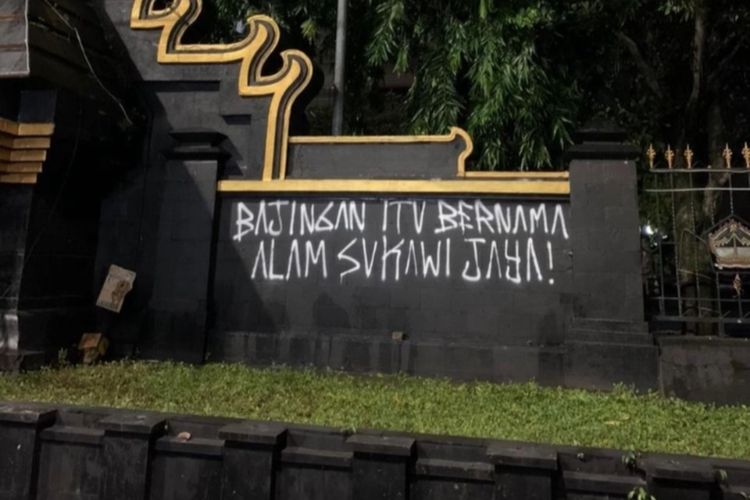 BAJINGAN ITU BERNAMA
ALAM SUKAWI JAYA!